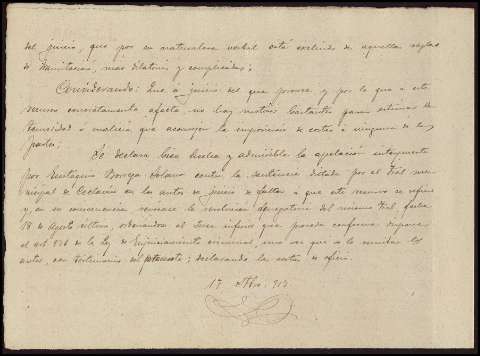 del juicio, que por su naturaleza verbal está excluido de aquellas reglas
de tramitación, más dilatorias y complicadas;
Considerando: Que a juicio del que provee, y por lo que a este
recurso concretamente afecta, no hay motivos bastantes para estimar de
temeridad o malicia que aconsejen la imposición de costas a ninguna de las
partes;
Se declara bien hecha y admisible la apelación interpuesta
por Eustaquio Borrega Solano contra la sentencia dictada por el Tral mu-
nicipal de en los autos de juicio de faltas a que este recurso se refiere
y, en su consecuencia, revócase la resolución denegatoria del mismo Tral fecha
18 de Agosto último, ordenándose al Juez inferior que proceda conforme dispone
el art 976 de la Ley de Enjuiciamiento criminal, una vez que a la
autos, con testimonio del presente; declarando las costas de oficio.
17 917